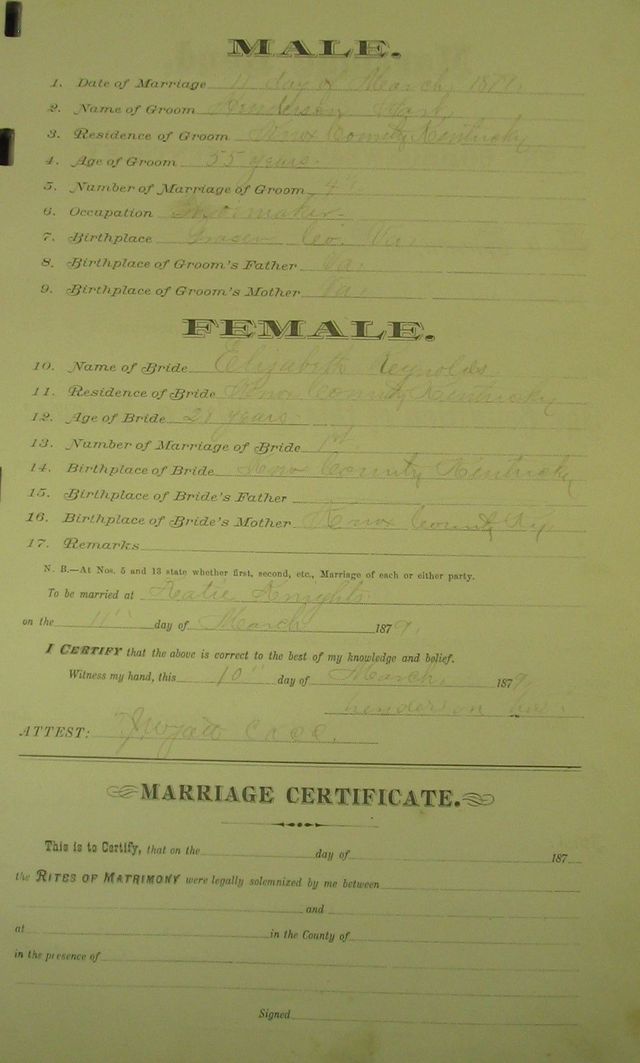 MALE.
1. Date of Marriage 11 day of March, 1879.
2. Name of Groom Henderson
3. Residence of Groom Knox County Kentucky
4. Age of Groom 55 years.
5. Number of Marriage of Groom 4th
6. Occupation Shoemaker
7. Birthplace Co. Va.
8. Birthplace of Groom's Father Va.
9. Birthplace of Groom's Mother Va.
FEMALE.
10. Name of Bride Elizabeth Reynolds
11. Residence of Bride Knox County Kentucky
12. Age of Bride 21 years.
13. Number of Marriage of Bride 1st.
14. Birthplace of Bride Knox County Kentucky
15. Birthplace of Bride's Father
16. Birthplace of Bride's Mother Knox County Ky.
17. Remarks
N. B.—At Nos. 5 and 13 state whether first, second, etc., Marriage of each or either party.
To be married at Katie Knights
on the 11" day of March 1879.
I CERTIFY that the above is correct to the best of my knowledge and belief.
Witness my hand, this 10" day of March, 1879
henderson
ATTEST:
MARRIAGE CERTIFICATE.
This is to Certify, that on the day of 187
the RITES OF MATRIMONY were legally solemnized by me between
and
at in the County of
in the presence of
Signed